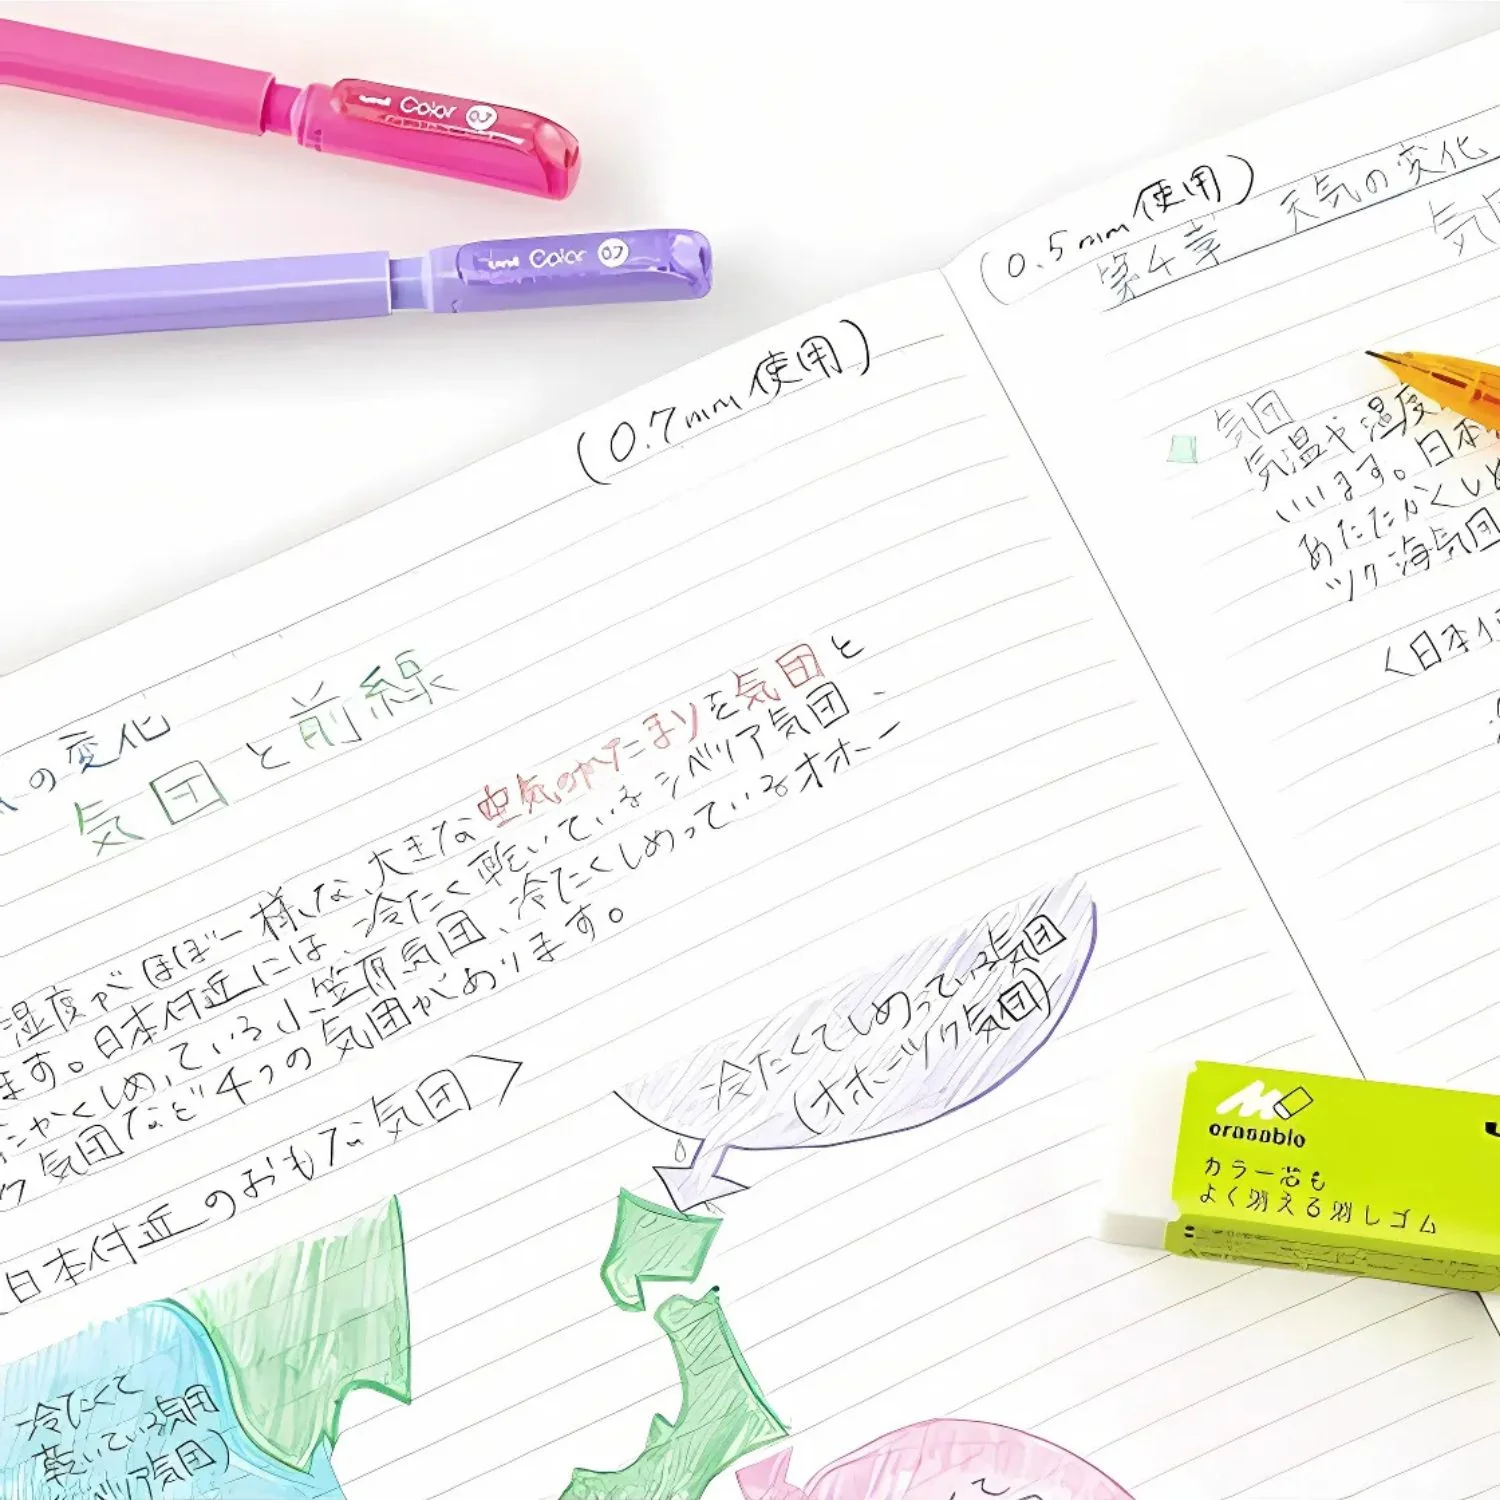 uni Color 0.7
uni Color 07
(0.7mm使用)
の変化
気団と前線
湿度がほぼ一様な大きな空気のかたまりを気団と
ます。日本付近には、冷たく乾いているシベリア気団、
たかくしめっている小笠原気団、冷たくしめっているオホー
ク気団など4つの気団があります。
日本付近のおもな気団〉
冷たくてしめっている気団
(オホーツク気団)
冷たくて
乾いている気団
ベリア気団)
(0.5mm使用)
第4章 天気の変化
気団
気団
気温や湿度
います。日本
あたたかくしめ
ツク海気団
〈日本付
erasable
カラー芯も
よく消える消しゴム